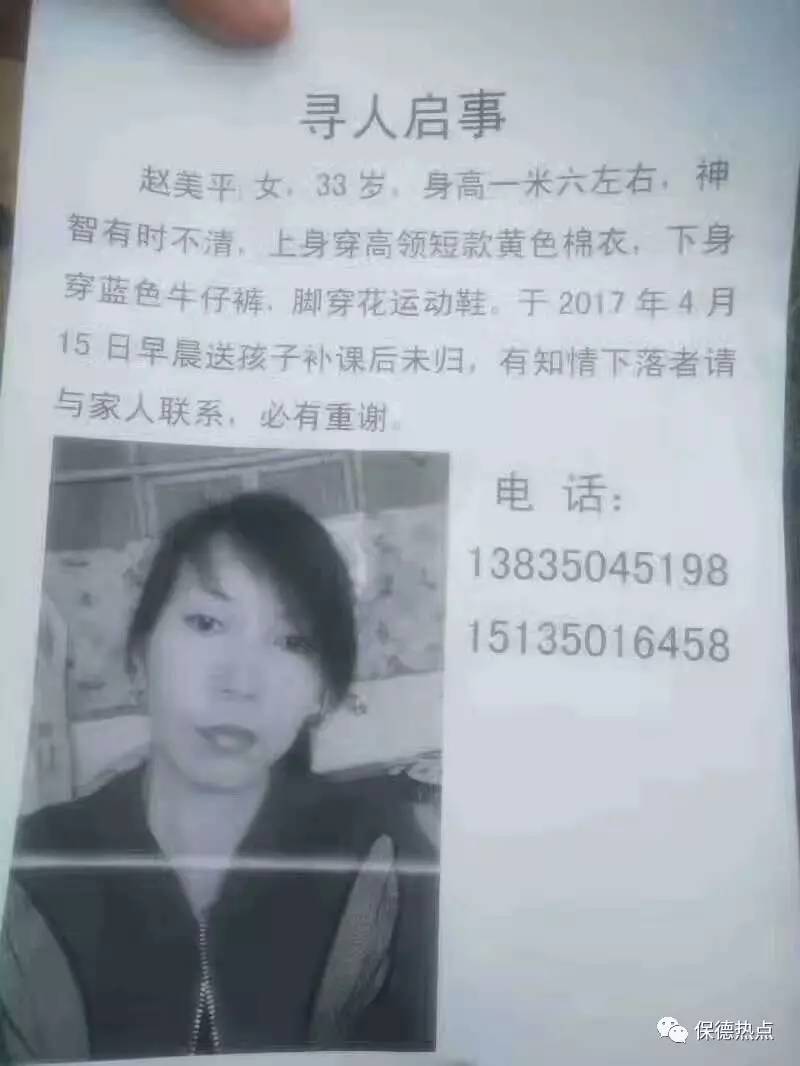 寻人启事
赵美平,女,33岁,身高一米六左右,神
智有时不清,上身穿高领短款黄色棉衣,下身
穿蓝色牛仔裤,脚穿花运动鞋。于2017年4月
15日早晨送孩子补课后未归,有知情下落者请
与家人联系,必有重谢。
电 话:
13835045198
15135016458
保德热点